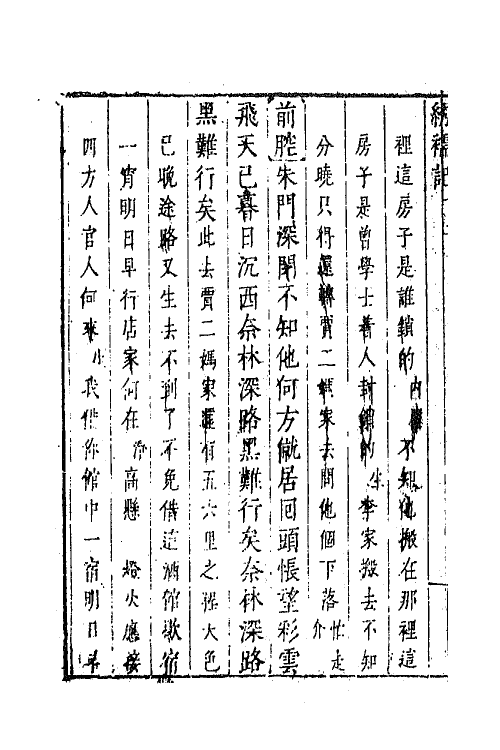 繡襦記
裡這房子是誰鎖的內應不知他搬在那裡這
房子是曾學士着人封鎖的生李家搬去不知
分曉只得還轉賈二媽家去問他個下落忙走介
前腔朱門深閉不知他何方僦居回頭悵望彩雲
飛天已暮日沉西奈林深路黑難行矣奈林深路
黑難行矣此去賈二媽家還有五六里之程天色
已晚途路又生去不到了不免借這酒館歇宿
一宵明日早行店家何在淨高懸燈火應接
四方人官人何來生我借你館中一宿明日早